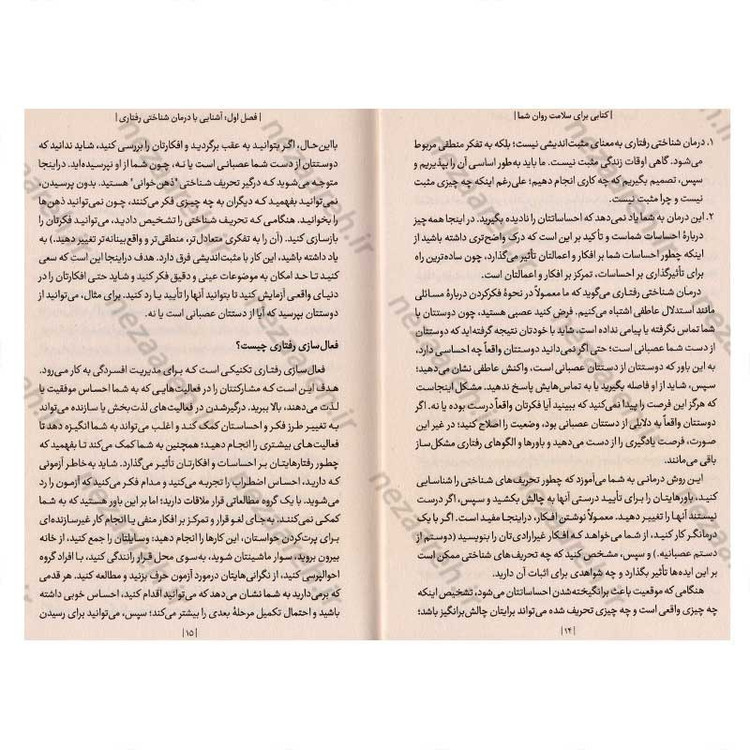 | کتابی برای سلامت روان شما |
۱. درمان شناختی رفتاری به‌معنای مثبت‌اندیشی نیست؛ بلکه به تفکر منطقی مربوط
می‌شود. گاهی اوقات زندگی مثبت نیست. ما باید به‌طور اساسی آن را بپذیریم و
سپس، تصمیم بگیریم که چه کاری انجام دهیم؛ علی‌رغم اینکه چه چیزی مثبت
نیست و چرا مثبت نیست.
۲. این درمان به شما یاد نمی‌دهد که احساساتتان را نادیده بگیرید. در اینجا همه‌چیز
دربارهٔ احساسات شماست و تأکید بر این است که درک واضح‌تری داشته باشید از
اینکه چطور احساسات شما بر افکار و اعمالتان تأثیر می‌گذارد، چون ساده‌ترین راه
برای تأثیرگذاری بر احساسات، تمرکز بر افکار و اعمالتان است.
درمان شناختی رفتاری می‌گوید که ما معمولاً در نحوهٔ فکرکردن دربارهٔ مسائلی
مانند استدلال عاطفی اشتباه می‌کنیم. فرض کنید عصبی هستید، چون دوستتان با
شما تماس نگرفته یا پیامی نداده است. شاید با خودتان نتیجه گرفته‌اید که دوستتان
از دست شما عصبانی است؛ حتی اگر نمی‌دانید دوستتان واقعاً چه احساسی دارد،
به این باور که دوستتان از دستتان عصبانی است، واکنش عاطفی نشان می‌دهید؛
سپس، شاید از او فاصله بگیرید یا به تماس‌هایش پاسخ ندهید. مشکل اینجاست
که هرگز این فرصت را پیدا نمی‌کنید که ببینید آیا فکرتان واقعاً درست بوده یا نه. اگر
دوستتان واقعاً به دلایلی از دستتان عصبانی بود، وضعیت را اصلاح کنید؛ در غیر این
صورت، فرصت یادگیری را از دست می‌دهید و باورها و الگوهای رفتاری مشکل‌ساز
باقی می‌مانند.
این روش درمانی به شما می‌آموزد که چطور تحریف‌های شناختی را شناسایی
کنید، باورهایتان را برای تأیید درستی آنها به چالش بکشید و سپس، اگر درست
نیستند آنها را تغییر دهید. معمولاً نوشتن افکار، دراینجا مفید است. اگر با یک
درمانگر کار کنید، از شما می‌خواهد که افکار غیرارادی‌تان را بنویسید (دوستم از
دستم عصبانیه.) و سپس، مشخص کنید که چه تحریف‌های شناختی ممکن است
بر این ایده‌ها تأثیر بگذارد و چه شواهدی برای اثبات آن دارید.
هنگامی که موقعیت باعث برانگیخته‌شدن احساساتتان می‌شود، تشخیص اینکه
چه چیزی واقعی است و چه چیزی تحریف شده می‌تواند برایتان چالش‌برانگیز باشد؛
| ۱۴ |
| فصل اول، آشنایی با درمان شناختی رفتاری |
بااین‌حال، اگر بتوانید به عقب برگردید و افکارتان را بررسی کنید، شاید ندانید که
دوستتان از دست شما عصبانی است یا نه، چون شما از او نپرسیده‌اید. دراینجا
متوجه می‌شوید که درگیر تحریف شناختی "ذهن‌خوانی" هستید. بدون پرسیدن،
نمی‌توانید بفهمید که دیگران به چه چیزی فکر می‌کنند، چون نمی‌توانید ذهن‌ها
را بخوانید. هنگامی که تحریف شناختی را تشخیص دادید، می‌توانید فکرتان را
بازسازی کنید. (آن را به تفکری متعادل‌تر، منطقی‌تر و واقع‌بینانه‌تر تغییر دهید.) به
یاد داشته باشید، این کار با مثبت‌اندیشی فرق دارد. هدف دراینجا این است که سعی
کنید تا حد امکان به موضوعات عینی و دقیق فکر کنید و شاید حتی افکارتان را در
دنیای واقعی آزمایش کنید تا بتوانید آنها را تأیید یا رد کنید. برای مثال، می‌توانید از
دوستتان بپرسید که آیا از دستتان عصبانی است یا نه.
فعال‌سازی رفتاری چیست؟
فعال‌سازی رفتاری تکنیکی است که برای مدیریت افسردگی به کار می‌رود.
هدف این است که مشارکتتان را در فعالیت‌هایی که به شما احساس موفقیت یا
لذت می‌دهند، بالا ببرید. درگیرشدن در فعالیت‌های لذت‌بخش یا سازنده می‌تواند
به تغییر طرز فکر و احساستان کمک کند و اغلب می‌تواند به شما انگیزه دهد تا
فعالیت‌های بیشتری را انجام دهید؛ همچنین به شما کمک می‌کند تا بفهمید که
چطور رفتارهایتان بر احساسات و افکارتان تأثیر می‌گذارد. شاید به‌خاطر آزمونی
که دارید، احساس اضطراب را تجربه می‌کنید و مدام فکر می‌کنید که آزمون را رد
می‌شوید. با یک گروه مطالعاتی قرار ملاقات دارید؛ اما بر این باور هستید که به شما
کمکی نمی‌کنند. به‌جای لغو قرار و تمرکز بر افکار منفی یا انجام کار غیرسازنده‌ای
برای پرت‌کردن حواستان، این کارها را انجام دهید: وسایلتان را جمع کنید، از خانه
بیرون بروید، سوار ماشینتان شوید، به‌سوی محل قرار رانندگی کنید، با افراد گروه
احوالپرسی کنید، از نگرانی‌هایتان درمورد آزمون حرف بزنید و مطالعه کنید. هر قدمی
که برمی‌دارید به شما نشان می‌دهد که می‌توانید اقدام کنید، احساس خوبی داشته
باشید و احتمال تکمیل مرحلهٔ بعدی را بیشتر می‌کند؛ سپس، می‌توانید برای رسیدن
| ۱۵ |
nezaareh.ir